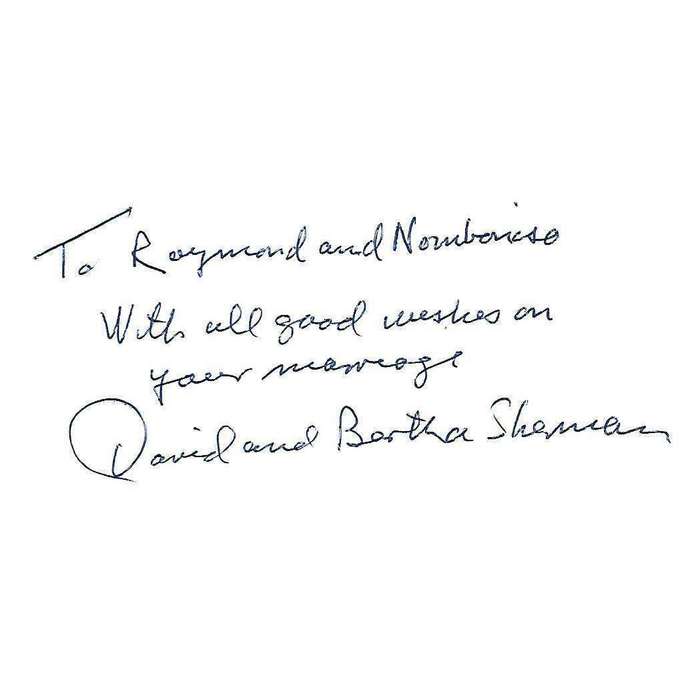 To Raymond and Nomboniso
With all good wishes on
your marriage
David and Bertha Sherman